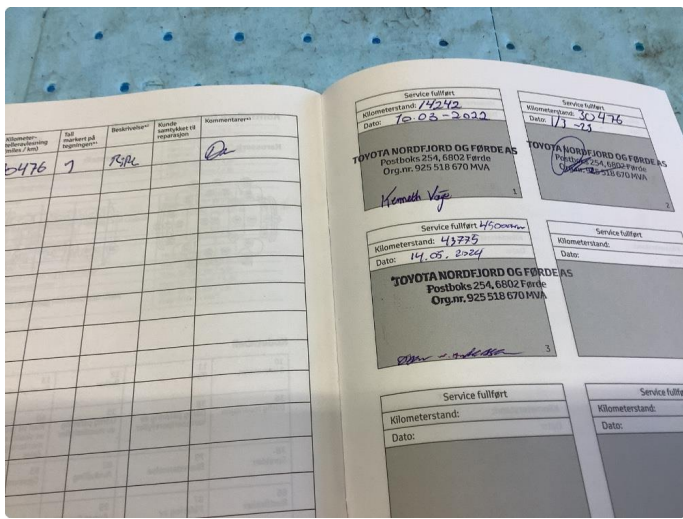 Kilometer-
telleravlesning
(miles / km)
Tall
markert på
tegningen*¹
Beskrivelse*²
Kunde
samtykket til
reparasjon
Kommentarer*³
0476
1
Ripe
Service fullført
Kilometerstand: 14242
Dato: 10.03-2022
TOYOTA NORDFJORD OG FØRDE AS
Postboks 254, 6802 Førde
Org.nr. 925 518 670 MVA
Kenneth
1
Service fullført
Kilometerstand: 30476
Dato: 1/3-23
TOYOTA NORDFJORD OG FØRDE AS
Postboks 254, 6802 Førde
Org.nr. 925 518 670 MVA
2
Service fullført 45000km
Kilometerstand: 43775
Dato: 14.05.2024
TOYOTA NORDFJORD OG FØRDE AS
Postboks 254, 6802 Førde
Org.nr. 925 518 670 MVA
3
Service fullført
Kilometerstand:
Dato:
Service fullført
Kilometerstand:
Dato:
Service fullfø
Kilometerstand:
Dato: